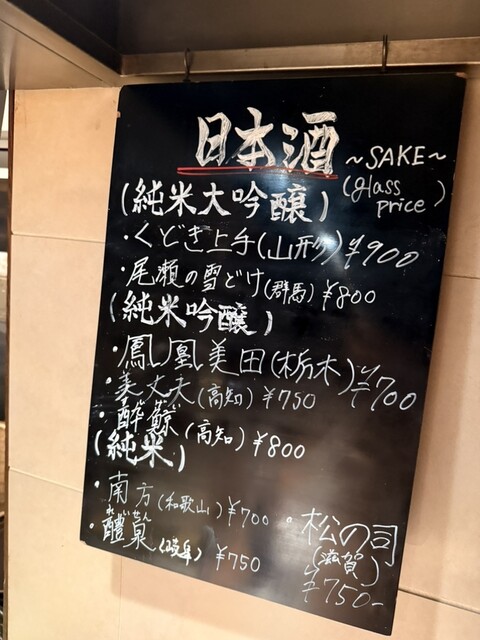 日本酒 ~SAKE~
(glass price)
(純米大吟醸)
・くどき上手(山形) ¥900
・尾瀬の雪どけ(群馬) ¥800
(純米吟醸)
・鳳凰美田(栃木) ¥700
・美丈夫(高知) ¥750
・酔鯨(高知) ¥800
(純米)
・南方(和歌山) ¥700
れいせん
・醴泉(岐阜) ¥750
・松の司
(滋賀)
¥750-